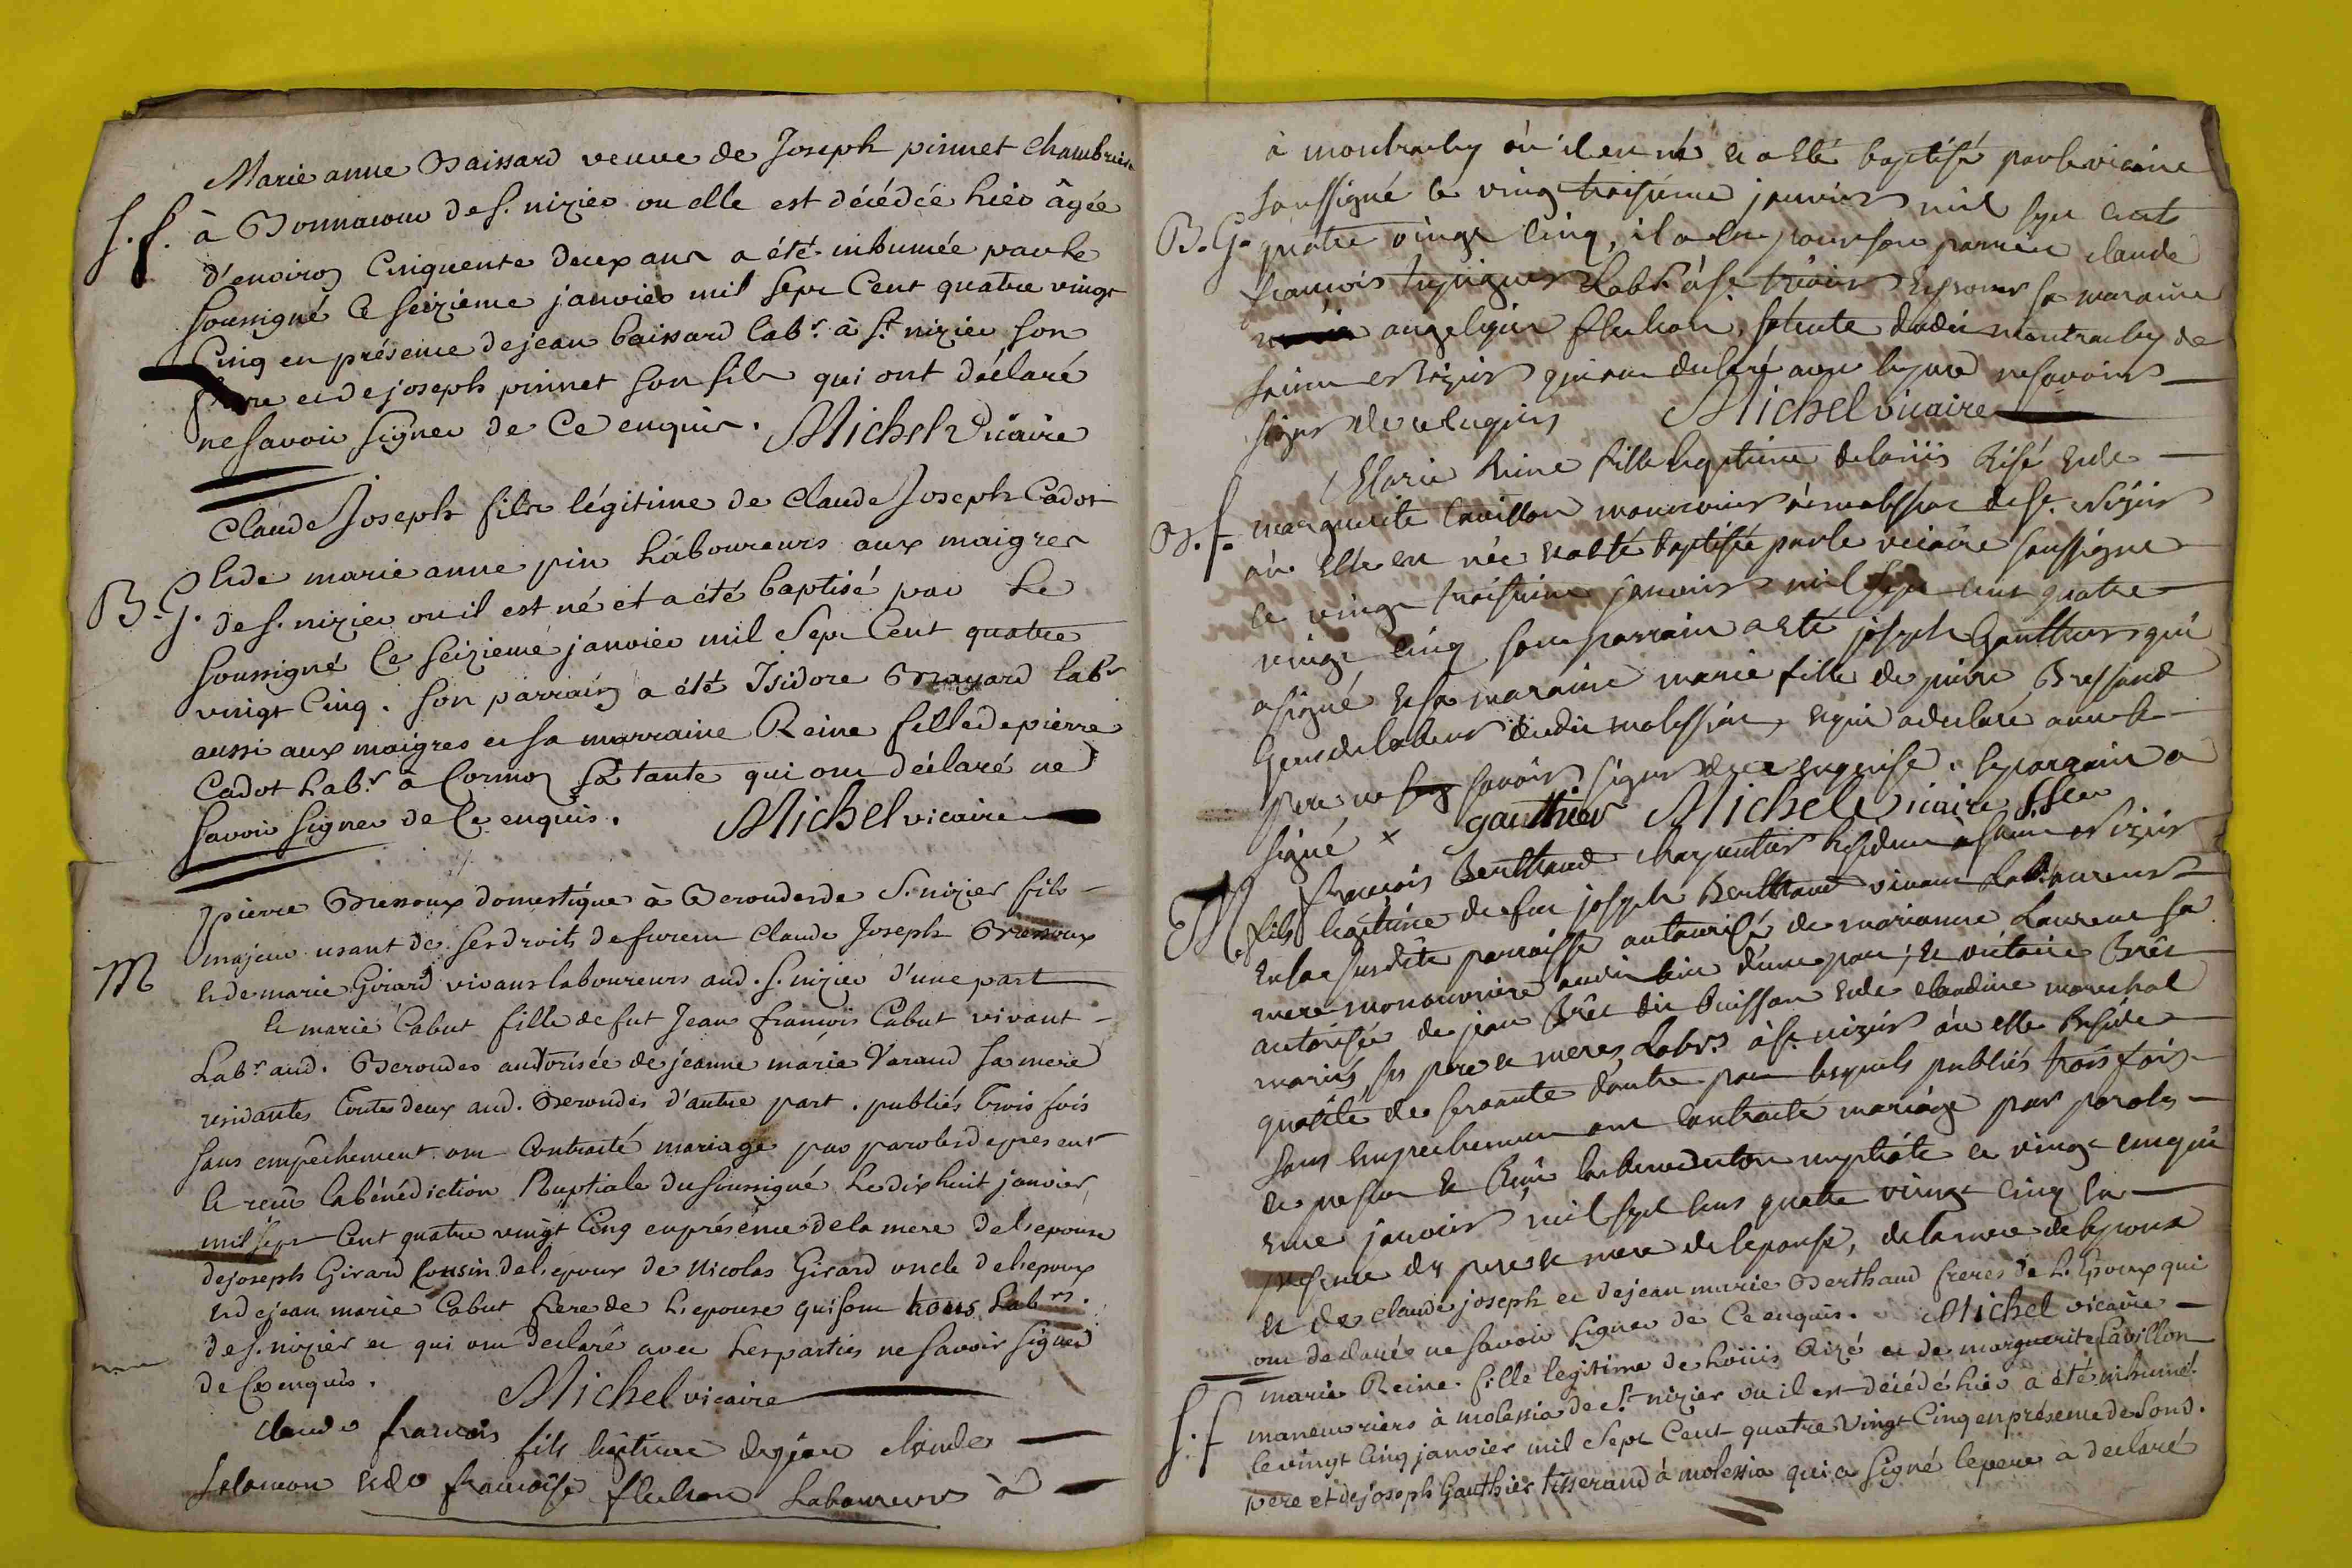 Marie anne Baissard veuve de Joseph pinnet chambriere
S. f. à Bonnacour de S. nizier ou elle est décédée hier âgée
d'environ Cinquente deux ans a été inhumée par le
Soussigné le seizieme janvier mil Sept Cent quatre vingt
Cinq en présence de jean baissard lab.r à S.t nizier son
frere et de joseph pinnet son fils qui ont déclaré
ne savoir signer de Ce enquis. Michel Vicaire
Claude Joseph fils légitime de Claude Joseph Cadot
et de marie anne pin Laboureurs aux maigres
B. G. de S. nizier ou il est né et a été baptisé par Le
soussigné le seizieme janvier mil Sept Cent quatre
vingt Cinq. son parrain a été Isidore Mayard labr
aussi aux maigres et sa marraine Reine fille de pierre
Cadot Lab.r à Cormoz sa tante qui ont déclaré ne
savoir signer de Ce enquis. Michel vicaire
pierre Bressoux domestique à Beroudes de S. nizier fils
majeur usant de ses droits de furent Claude Joseph Bressoux
M et de marie Girard vivans laboureurs aud. S. nizier d'une part
Et marie Cabut fille de fut Jean francois Cabut vivant
Lab.r aud. Beroudes authorisée de jeanne marie Varaud sa mere
residantes toutes deux aud. Beroudes d'autre part. publiés trois fois
sans empêchement ont Contracté mariage par paroles de present
et recû la bénédiction Nuptiale du soussigné Le dix huit janvier
mil sept Cent quatre vingt Cinq en présence de la mere de l'epouse
de joseph Girard Cousin de l'epoux de Nicolas Girard oncle de l'epoux
et de jean marie Cabut frere de L'epouse qui sont tous Lab.rs
de S. nizier et qui ont declaré avec Les parties ne savoir signer
de Ce enquis. Michel vicaire
Claude francois fils legitime de jean claude
Salomon et de francoise flechon Laboureurs à
à montrachy où il est né et a été baptisé par le vicaire
soussigné le vingt troisieme janvier mil sept cent
B. G. quatre vingt Cinq, il a eu pour son parrain claude
francois labr. à St. et pour sa maraine
angelique flechon, sa tante dudit montrachy de
saint Nizier qui ont declaré avec le pere ne savoir
signer de ce enquis Michel vicaire
Marie Reine fille legitime de loüis Risé et de
B. f. marguerite Cavillon manouvriers à malessia de St. Nizier
où elle est née et a été baptisée par le vicaire soussigné
le vingt troisieme janvier mil Sept cent quatre
vingt cinq son parrain a été joseph Gauthier qui
a signé et sa maraine marie fille de pierre Bressand
dudit malessia, et qui a declaré avec le
pere ne savoir signer de ce enquise. le parrain a
signé x gauthier Michel Vicaire
M francois Berthaud charpentier residant a saint Nizier
fils legitime de feu joseph Berthaud vivant Laboureurs
en la susdite paroisse autorisé de marianne Laurent sa
mere manouvriere audit lieu d'une part; et victoire Brêt
autorisée de jean Brêt du buisson et de claudine marechal
mariés, ses pere et meres, Labrs. à St. nizier où elle Reside
qualité de servante dautre part lesquels publiés trois fois
sans empechement ont Contracté mariage par paroles
de present et Reçu la benediction nuptiale le vingt cinqui
eme janvier mil sept cens quatre vingt cinq en
presence des pere et mere de lepouse, de la mere de lepoux
et de claude joseph et de jean marie Berthaud freres de L'Epoux qui
ont declarés ne savoir signer de Ce enquis. Michel vicaire
marie Reine fille legitime de Loüis Rizé et de marguerite Cavillon
S. f maneuvriers à molessia de S.t nizier ou il est décédé hier à été inhumé
le vingt Cinq janvier mil Sept Cent quatre Vingt Cinq en présence de sond.
pere et de joseph Gauthier tisserand à molessia qui a signé le pere a declaré